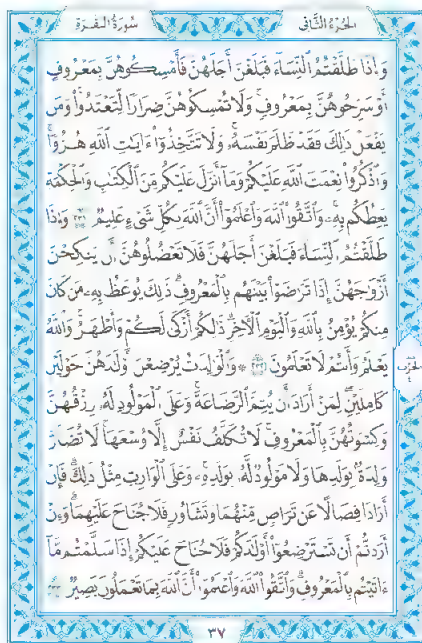 الجزء الثاني سورة البقرة
وَإِذَا طَلَّقْتُمُ ٱلنِّسَآءَ فَبَلَغْنَ أَجَلَهُنَّ فَأَمْسِكُوهُنَّ بِمَعْرُوفٍ
أَوْ سَرِّحُوهُنَّ بِمَعْرُوفٍ ۚ وَلَا تُمْسِكُوهُنَّ ضِرَارًا لِّتَعْتَدُوا۟ ۚ وَمَن
يَفْعَلْ ذَٰلِكَ فَقَدْ ظَلَمَ نَفْسَهُۥ ۚ وَلَا تَتَّخِذُوٓا۟ ءَايَٰتِ ٱللَّهِ هُزُوًا ۚ
وَٱذْكُرُوا۟ نِعْمَتَ ٱللَّهِ عَلَيْكُمْ وَمَآ أَنزَلَ عَلَيْكُم مِّنَ ٱلْكِتَٰبِ وَٱلْحِكْمَةِ
يَعِظُكُم بِهِۦ ۚ وَٱتَّقُوا۟ ٱللَّهَ وَٱعْلَمُوٓا۟ أَنَّ ٱللَّهَ بِكُلِّ شَىْءٍ عَلِيمٌ ٢٣١ وَإِذَا
طَلَّقْتُمُ ٱلنِّسَآءَ فَبَلَغْنَ أَجَلَهُنَّ فَلَا تَعْضُلُوهُنَّ أَن يَنكِحْنَ
أَزْوَٰجَهُنَّ إِذَا تَرَٰضَوْا۟ بَيْنَهُم بِٱلْمَعْرُوفِ ۗ ذَٰلِكَ يُوعَظُ بِهِۦ مَن كَانَ
مِنكُمْ يُؤْمِنُ بِٱللَّهِ وَٱلْيَوْمِ ٱلْءَاخِرِ ۗ ذَٰلِكُمْ أَزْكَىٰ لَكُمْ وَأَطْهَرُ ۗ وَٱللَّهُ
يَعْلَمُ وَأَنتُمْ لَا تَعْلَمُونَ ٢٣٢ ۞ وَٱلْوَٰلِدَٰتُ يُرْضِعْنَ أَوْلَٰدَهُنَّ حَوْلَيْنِ
كَامِلَيْنِ ۖ لِمَنْ أَرَادَ أَن يُتِمَّ ٱلرَّضَاعَةَ ۚ وَعَلَى ٱلْمَوْلُودِ لَهُۥ رِزْقُهُنَّ
وَكِسْوَتُهُنَّ بِٱلْمَعْرُوفِ ۚ لَا تُكَلَّفُ نَفْسٌ إِلَّا وُسْعَهَا ۚ لَا تُضَآرَّ
وَٰلِدَةٌۢ بِوَلَدِهَا وَلَا مَوْلُودٌ لَّهُۥ بِوَلَدِهِۦ ۚ وَعَلَى ٱلْوَارِثِ مِثْلُ ذَٰلِكَ ۗ فَإِنْ
أَرَادَا فِصَالًا عَن تَرَاضٍ مِّنْهُمَا وَتَشَاوُرٍ فَلَا جُنَاحَ عَلَيْهِمَا ۗ وَإِنْ
أَرَدتُّمْ أَن تَسْتَرْضِعُوٓا۟ أَوْلَٰدَكُمْ فَلَا جُنَاحَ عَلَيْكُمْ إِذَا سَلَّمْتُم مَّآ
ءَاتَيْتُم بِٱلْمَعْرُوفِ ۗ وَٱتَّقُوا۟ ٱللَّهَ وَٱعْلَمُوٓا۟ أَنَّ ٱللَّهَ بِمَا تَعْمَلُونَ بَصِيرٌ ٢٣٣
٣٧